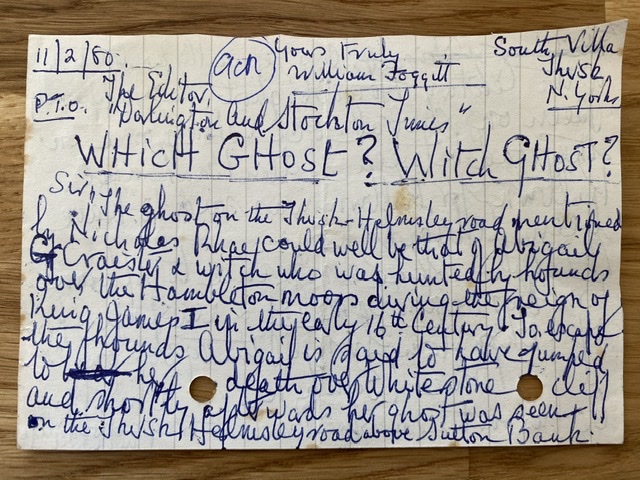 11/2/80.
ack
Yours truly
William Foggitt
South Villa
Thirsk
N. Yorks
P.T.O.
The Editor,
"Darlington and Stockton Times"
WHICH GHOST? WITCH GHOST?
Sir, The ghost on the Thirsk-Helmsley road mentioned
by Nicholas Rhae, could well be that of Abigail
Craester a witch who was hunted by hounds
over the Hambleton moors during the reign of
King James I in the early 16th Century. To escape
the hounds Abigail is said to have jumped
to her death over Whitestone cliff
and shortly afterwards her ghost was seen
on the Thirsk Helmsley road above Sutton Bank.